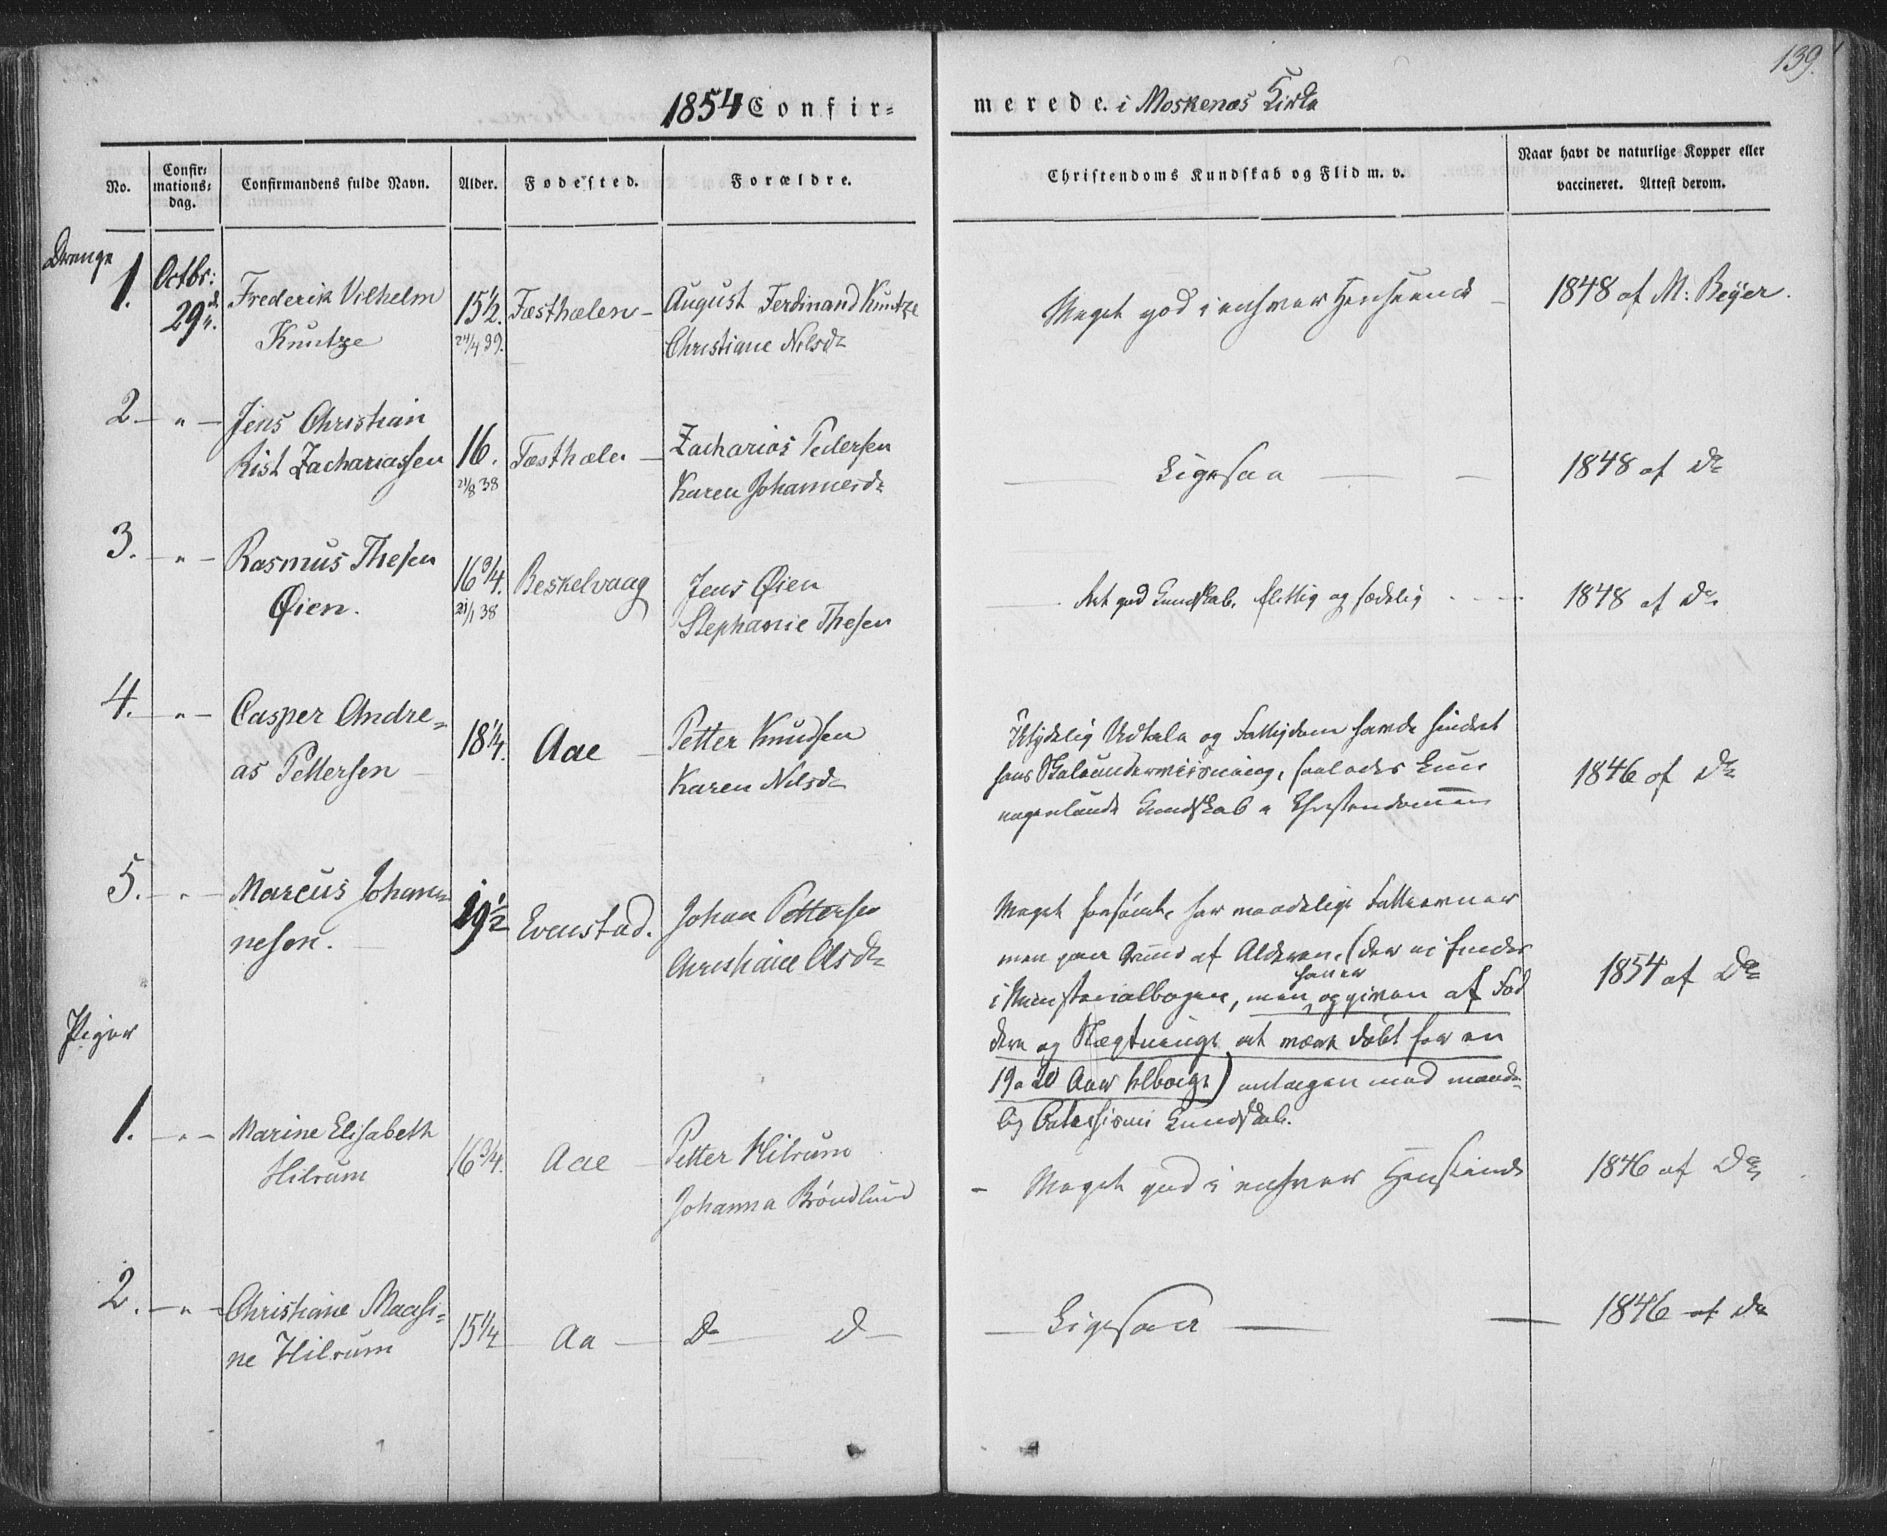 139.
1854 Confir=
merede. i Moskenæs Kirke
No.
Confir=
mations=
dag.
Confirmandens fulde Navn.
Alder.
Fødested.
Forældre.
Christendoms Kundskab og Flid m. v.
Naar havt de naturlige Kopper eller
vaccineret. Attest derom.
Drenge
1.
Octbr:
29de
Frederik Vilhelm
Kuntze
15½.
24/4 39.
Fæsthælen –
August Ferdinand Kuntze
Christiane Nilsdr
Meget god i enhver Henseende –
1848 af M: Beyer.
2 – " –
Jens Christian
Rist Zachariassen
16.
21/8 38
Fæsthæle. –
Zacharias Pedersen
Karen Johannesdr
– Ligesaa – –
1848 af Do
3. – " –
Rasmus Thesen
Øien.
16¾.
21/1 38
Beskelvaag
Jens Øien
Stephanie Thesen
Ret god Kundskab. flittig og sædelig
1848 af Do
4. – " –
Casper Andre=
as Pettersen –
18¼.
Aae –
Petter Knudsen
Karen Nilsdr
Utydelig Udtale og Fattigdom havde hindret
hans Skoleundervisning, saaledes kun
nogenlunde Kundskab i Christendommen
1846 af Do
5. – " –
Marcus Johan=
nesen. –
19½
Evenstad.
Johan Pettersen
Christiane Olsdr
Meget forsømt, har maadelige Sjæleevner
men paa Grund af Alderen, (der ei findes
i Ministerialbogen, men haves opgiven af Fad
dere og Slægtninge at være døbt for en
19 a 20 Aar tilbage) antagen med maade=
lig Catechismi Kundskab.
1854 af Do
Piger
1. – " –
Marine Elisabeth
Hilrum
16¾.
Aae –
Petter Hilrum
Johanna Brøndlund
– Meget god i enhver Henseende
1846 af Do
2. – " –
Christiane Maasi=
ne Hilrum
15¼
Aa –
Do – Do –
– Ligesaa – –
1846 af Do